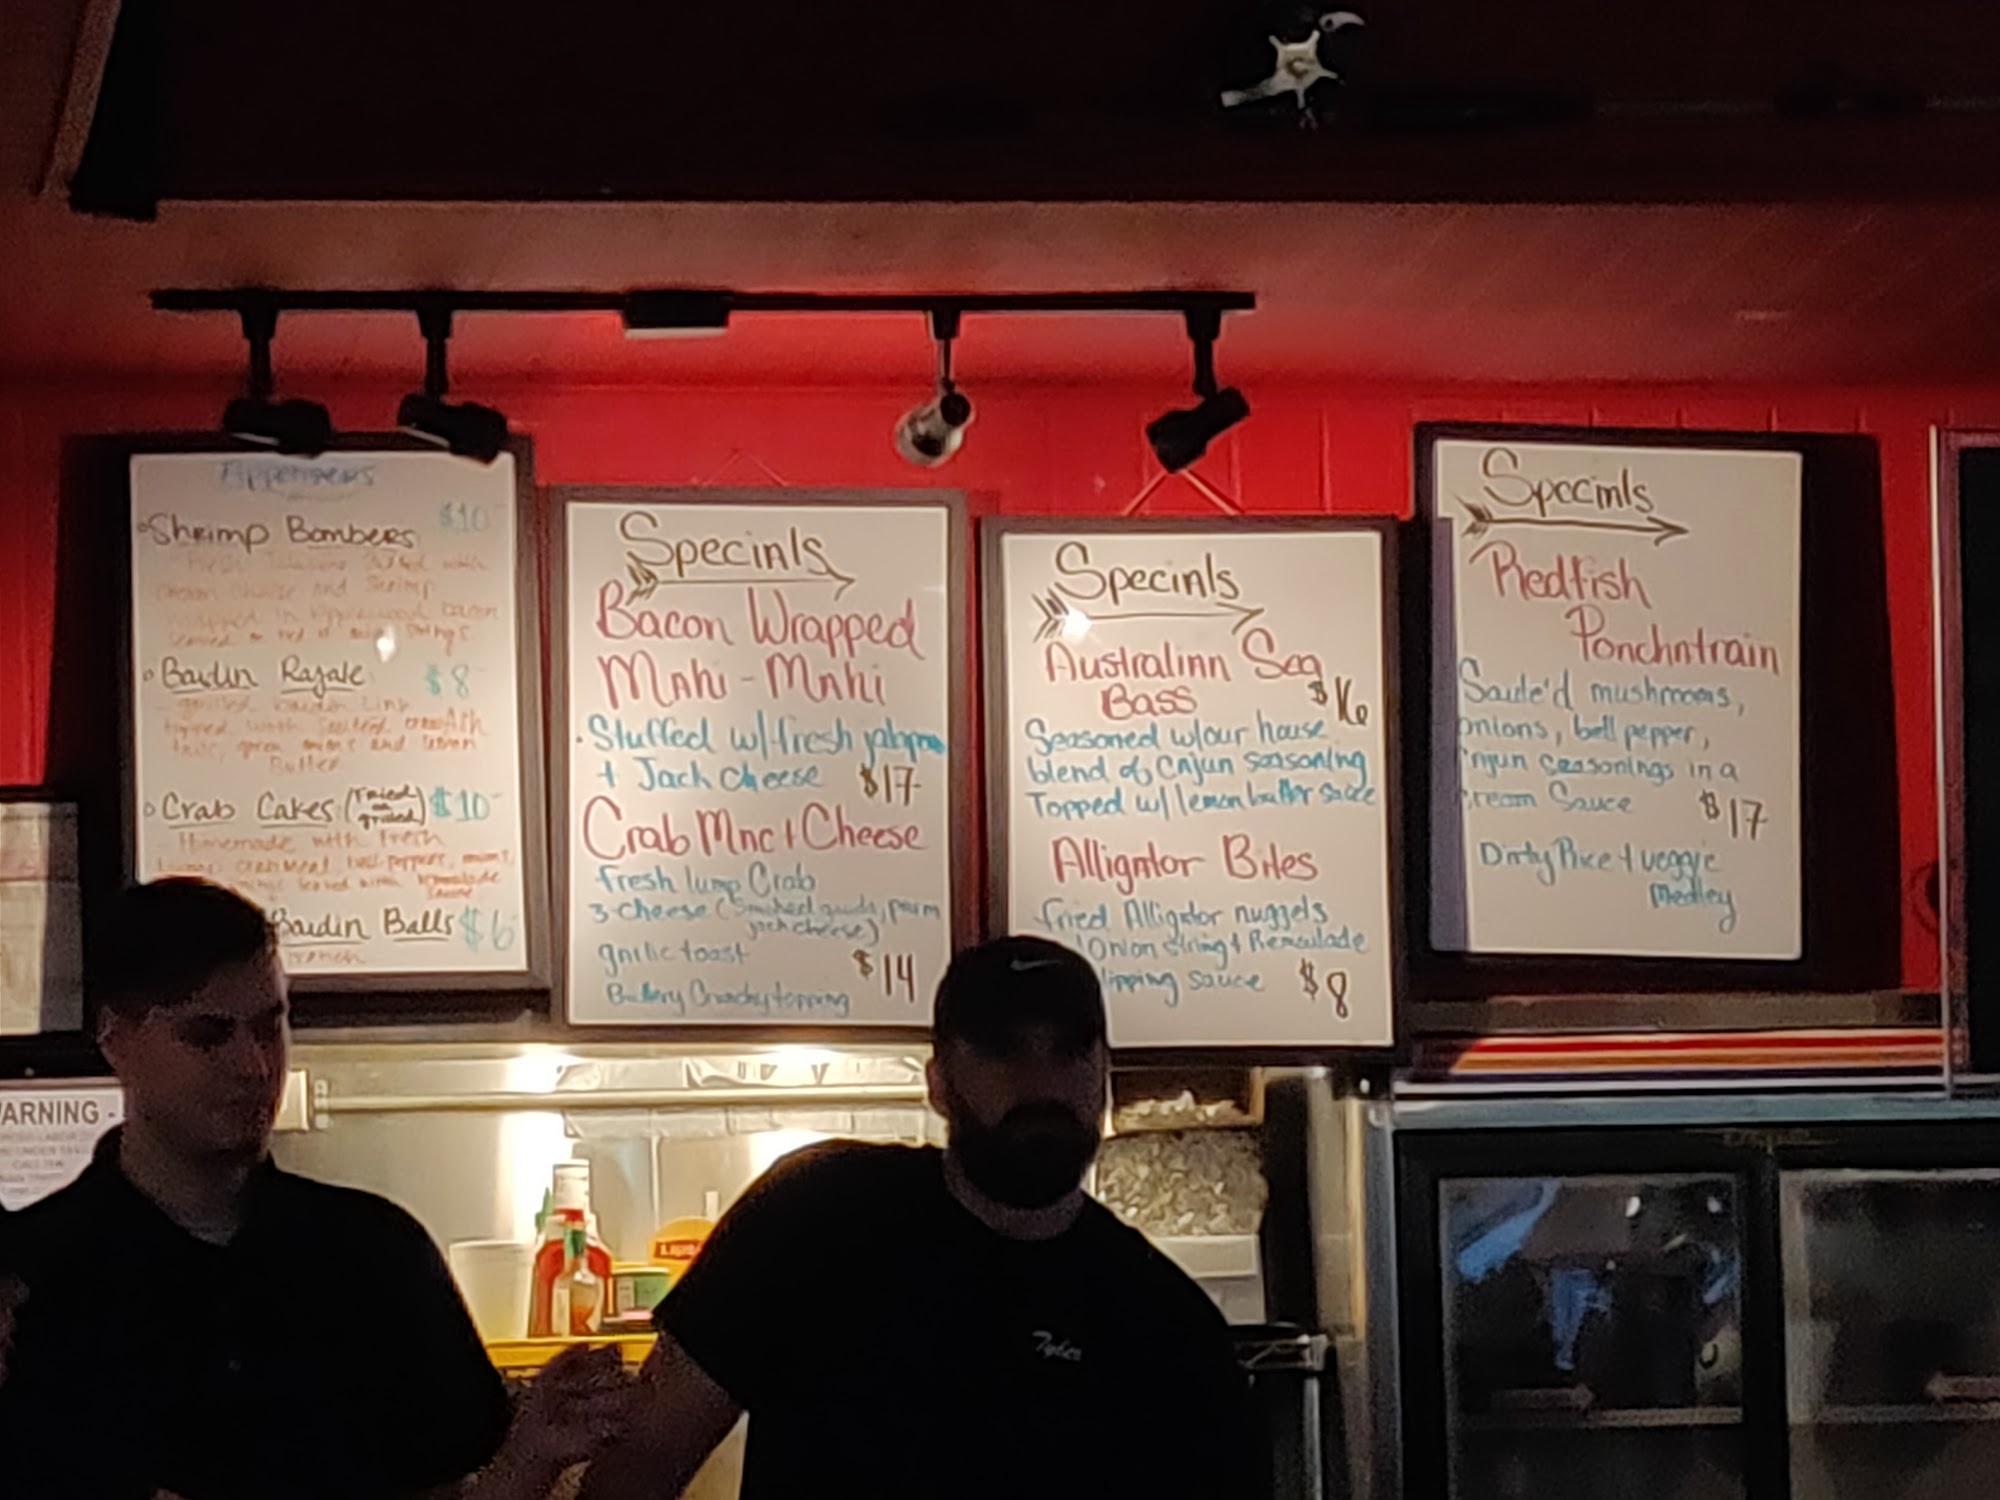 Appetizers
Shrimp Bombers $10
cream cheese and Shrimp
wrapped in Applewood bacon
Boudin Rajale $8
grilled boudin link
topped with
green onions and lemon
Butter
Crab Cakes (Fried or grilled) $10
Homemade with Fresh
lump crab meat, bell peppers, onions,
Sauce
Boudin Balls $6
Specials
Bacon Wrapped
Mahi-Mahi
Stuffed w/fresh
+ Jack Cheese $17
Crab Mac + Cheese
fresh lump Crab
3 Cheese (Smoked gouda, parm
jack cheese)
garlic toast $14
Buttery Crunchy topping
Specials
Australian Sea
Bass $16
Seasoned w/our house
blend of Cajun seasoning
Topped w/ lemon butter sauce
Alligator Bites
fried Alligator nuggets
Onion string + Remoulade
dipping sauce $8
Specials
Redfish
Ponchatrain
Saute'd mushrooms,
onions, bell pepper,
cajun seasonings in a
cream Sauce $17
Dirty Rice + veggie
Medley
WARNING -
Tyler